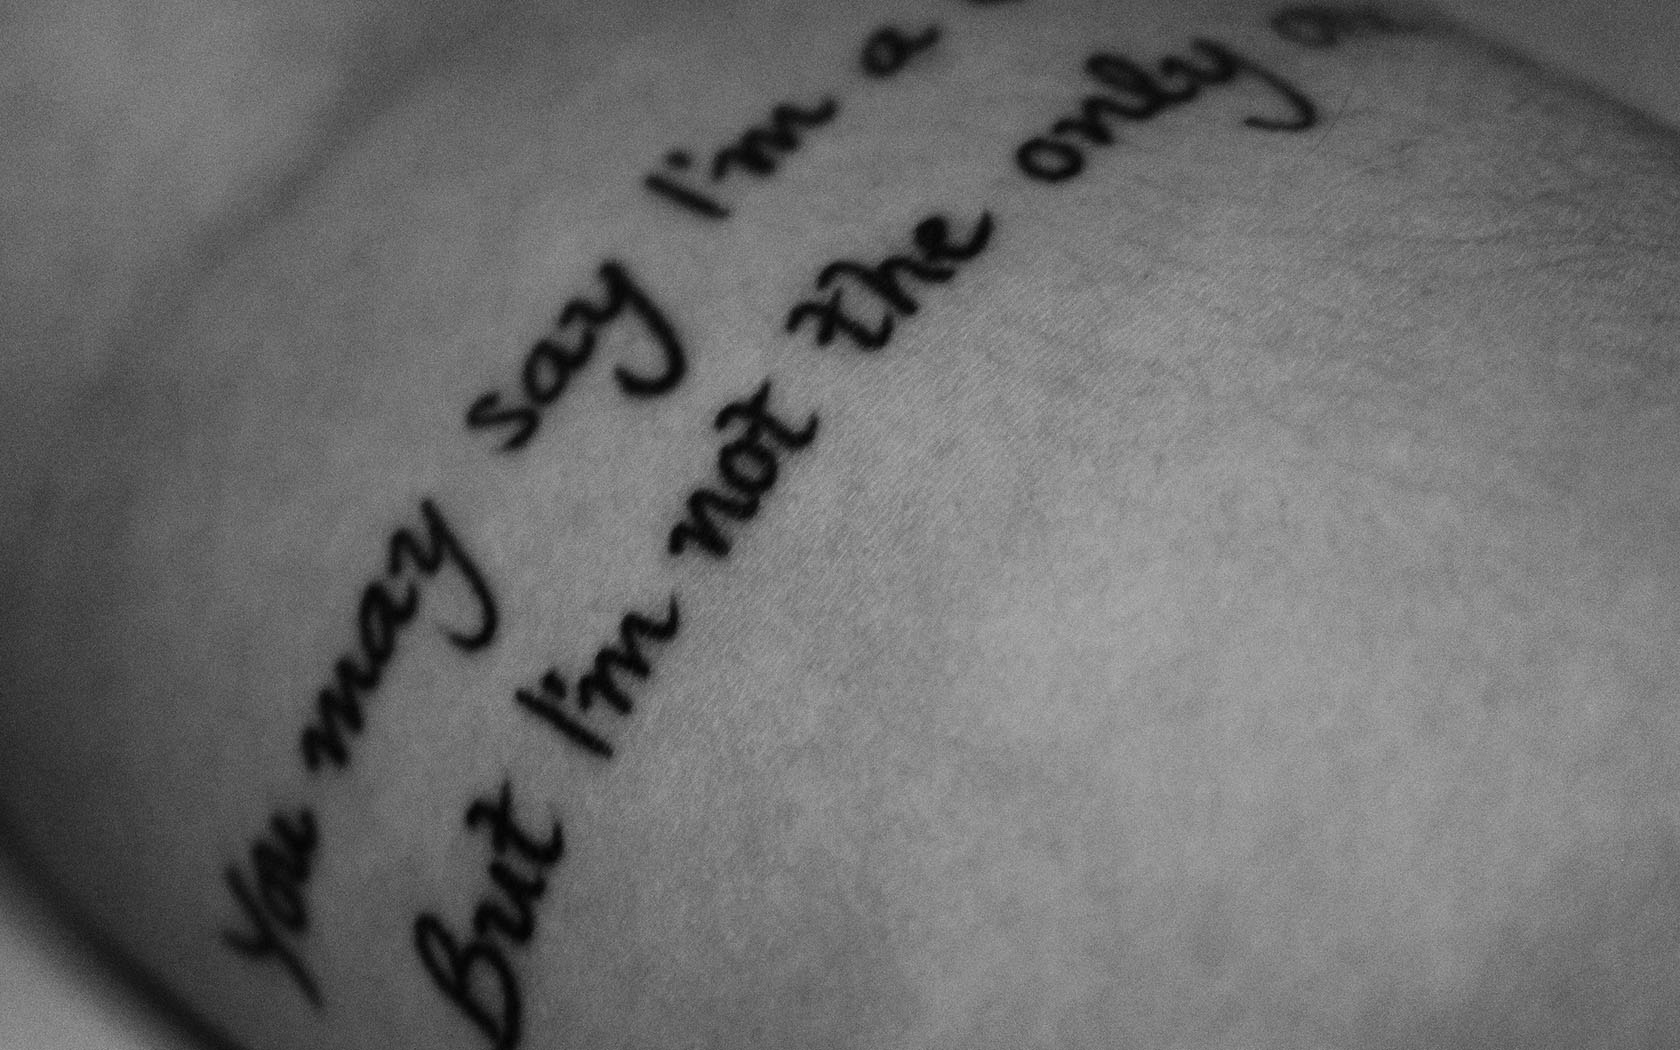 You may say I'm a
But I'm not the only